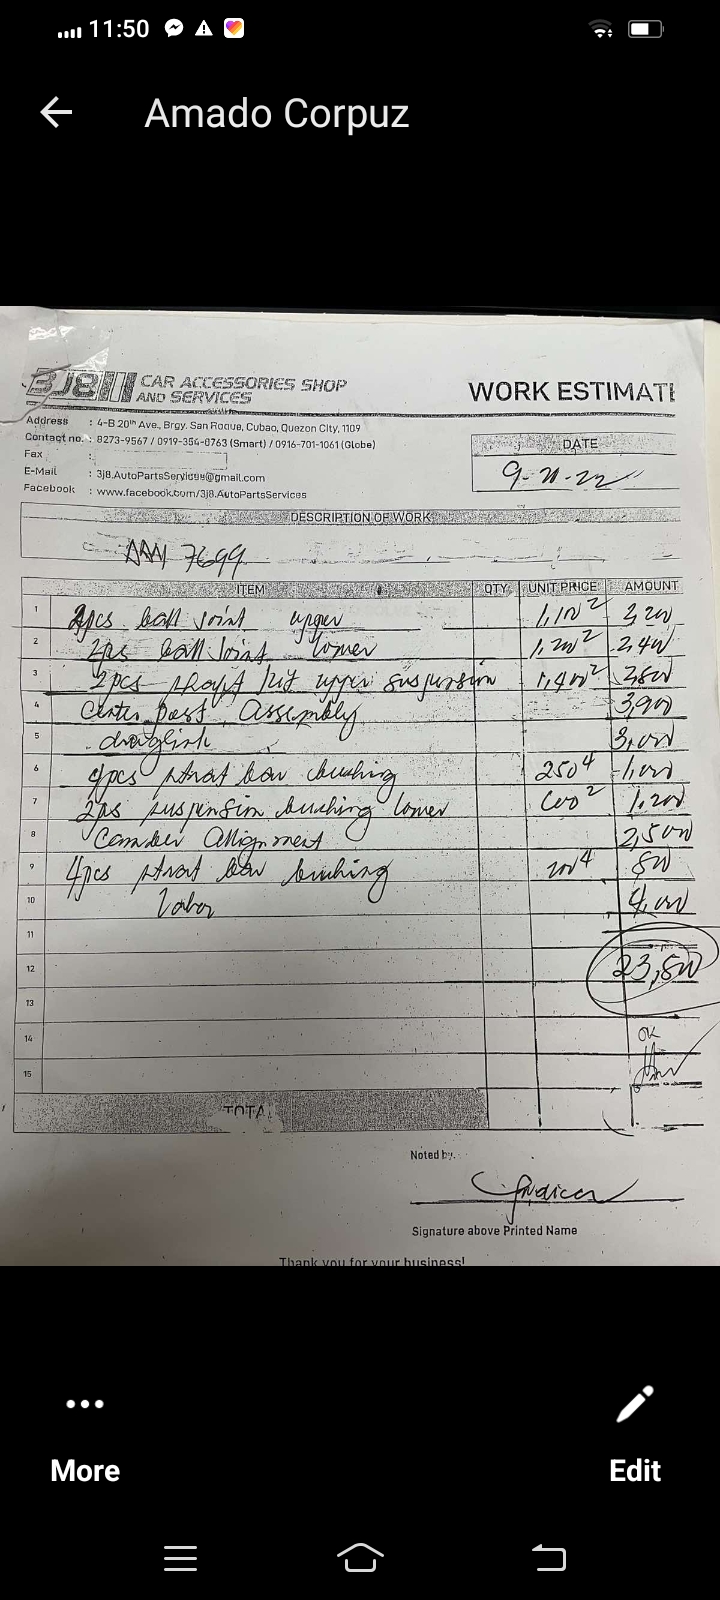 11:50
Amado Corpuz
3J8 CAR ACCESSORIES SHOP
AND SERVICES
WORK ESTIMATE
Address : 4-B 20th Ave., Brgy. San Roque, Cubao, Quezon City, 1109
Contact no. : 8273-9567 / 0919-354-0763 (Smart) / 0916-701-1061 (Globe)
Fax :
E-Mail : 3j8.AutoPartsServices@gmail.com
Facebook : www.facebook.com/3j8.AutoPartsServices
DATE
9-21-22
DESCRIPTION OF WORK
7699
ITEM QTY UNIT PRICE AMOUNT
1 2pcs ball joint upper 1,100 2 2,200
2 2pcs ball joint lower 1,200 2 2,400
3 2pcs shaft kit upper suspension 1,400 2 2,800
4 Center post Assembly 3,900
5 draglink 3,000
6 4pcs strut bar bushing 250 4 1,000
7 2pcs suspension bushing lower 600 2 1,200
8 Camber Allignment 2,500
9 4pcs strut bar bushing 200 4 800
10 Labor 4,000
11
12 23,800
13
14 OK
15
TOTAL
Noted by:
Signature above Printed Name
Thank you for your business!
More
Edit